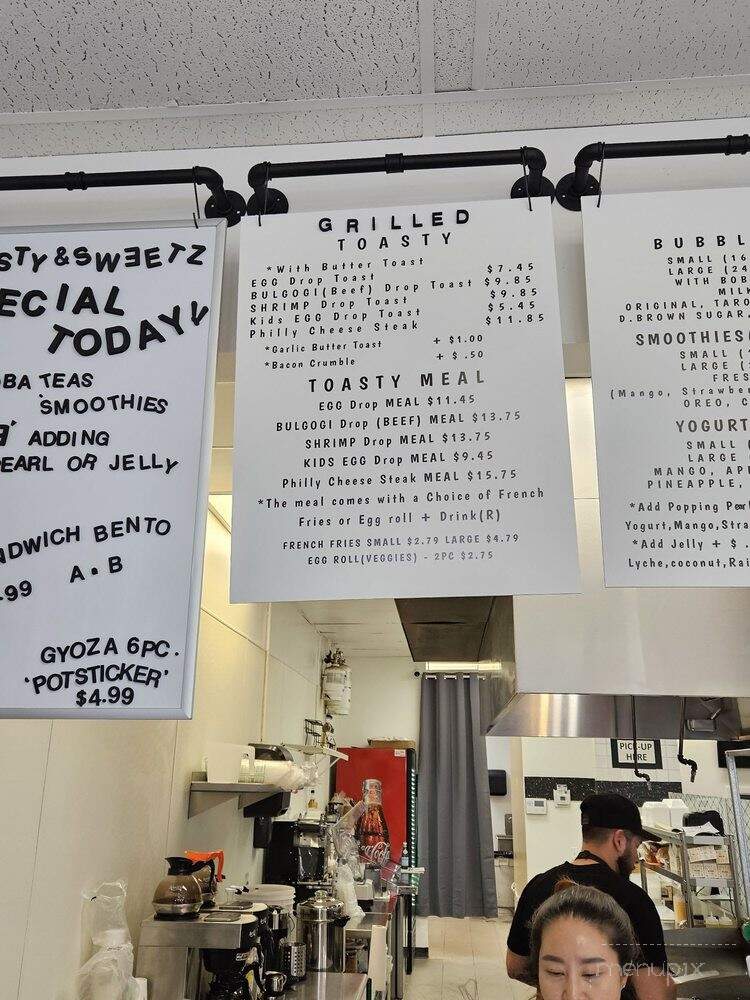 STY & SWEETZ
ECIAL
TODAY!
OBA TEAS
SMOOTHIES
ADDING
PEARL OR JELLY
NDWICH BENTO
.99 A • B
GYOZA 6PC.
'POTSTICKER'
$4.99
GRILLED
TOASTY
*With Butter Toast
EGG Drop Toast $7.45
BULGOGI(Beef) Drop Toast $9.85
SHRIMP Drop Toast $9.85
Kids EGG Drop Toast $5.45
Philly Cheese Steak $11.85
*Garlic Butter Toast + $1.00
*Bacon Crumble + $.50
TOASTY MEAL
EGG Drop MEAL $11.45
BULGOGI Drop (BEEF) MEAL $13.75
SHRIMP Drop MEAL $13.75
KIDS EGG Drop MEAL $9.45
Philly Cheese Steak MEAL $15.75
*The meal comes with a Choice of French
Fries or Egg roll + Drink(R)
FRENCH FRIES SMALL $2.79 LARGE $4.79
EGG ROLL(VEGGIES) - 2PC $2.75
BUBBL
SMALL (16
LARGE (24
WITH BOB
MILK
ORIGINAL, TARO
D.BROWN SUGAR,
SMOOTHIES
SMALL (
LARGE (
FRES
(Mango, Strawber
OREO, C
YOGURT
SMALL
LARGE
MANGO, APP
PINEAPPLE,
*Add Popping Pearl
Yogurt,Mango,Stra
*Add Jelly + $ .
Lyche,coconut,Rai
PICK-UP
HERE
Coca-Cola
menupix